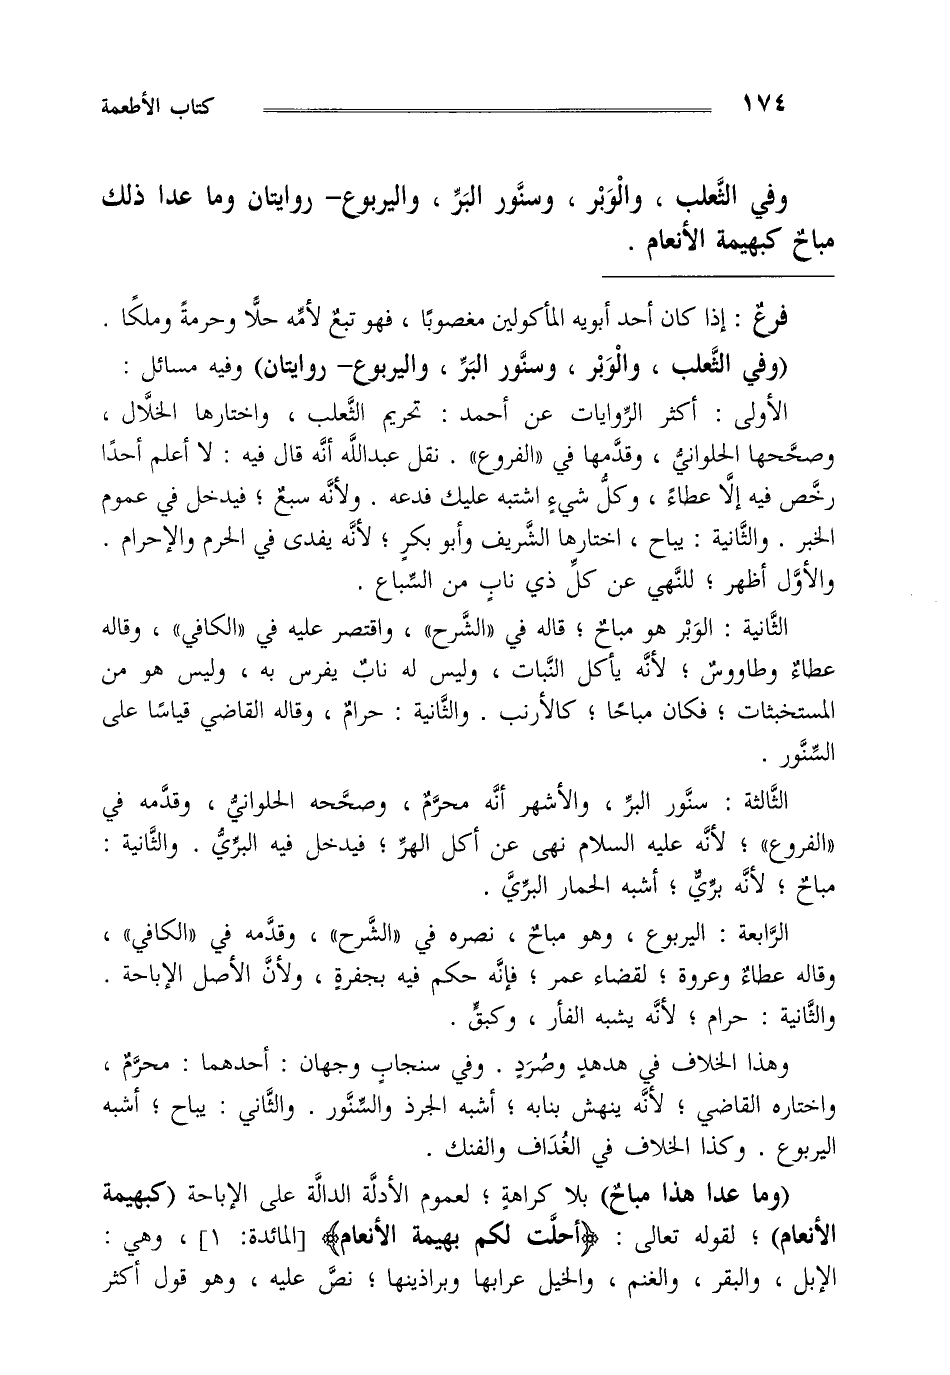 ١٧٤ كتاب الأطعمة
وفي الثَّعلب ، والْوَبْر ، وسنَّور البَرِّ ، واليربوع– روايتان وما عدا ذلك
مباحٌ كبهيمة الأنعام .
فرعٌ : إذا كان أحد أبويه المأكولين مغصوبًا ، فهو تبعٌ لأمِّه حلًّا وحرمةً وملكًا .
(وفي الثَّعلب ، والْوَبْر ، وسنَّور البَرِّ ، واليربوع– روايتان) وفيه مسائل :
الأولى : أكثر الرِّوايات عن أحمد : تحريم الثَّعلب ، واختارها الخلَّال ،
وصحَّحها الحلوانيُّ ، وقدَّمها في «الفروع» . نقل عبدالله أنَّه قال فيه : لا أعلم أحدًا
رخَّص فيه إلَّا عطاءً ، وكلُّ شيءٍ اشتبه عليك فدعه . ولأنَّه سبعٌ ؛ فيدخل في عموم
الخبر . والثَّانية : يباح ، اختارها الشَّريف وأبو بكرٍ ؛ لأنَّه يفدى في الحرم والإحرام .
والأوَّل أظهر ؛ للنَّهي عن كلِّ ذي نابٍ من السِّباع .
الثَّانية : الوَبْر هو مباحٌ ؛ قاله في «الشَّرح» ، واقتصر عليه في «الكافي» ، وقاله
عطاءٌ وطاووسٌ ؛ لأنَّه يأكل النَّبات ، وليس له نابٌ يفرس به ، وليس هو من
المستخبثات ؛ فكان مباحًا ؛ كالأرنب . والثَّانية : حرامٌ ، وقاله القاضي قياسًا على
السِّنَّور .
الثَّالثة : سنَّور البرِّ ، والأشهر أنَّه محرَّمٌ ، وصحَّحه الحلوانيُّ ، وقدَّمه في
«الفروع» ؛ لأنَّه عليه السلام نهى عن أكل الهرِّ ؛ فيدخل فيه البرِّيُّ . والثَّانية :
مباحٌ ؛ لأنَّه برِّيٌّ ؛ أشبه الحمار البرِّيَّ .
الرَّابعة : اليربوع ، وهو مباحٌ ، نصره في «الشَّرح» ، وقدَّمه في «الكافي» ،
وقاله عطاءٌ وعروة ؛ لقضاء عمر ؛ فإنَّه حكم فيه بجفرةٍ ، ولأنَّ الأصل الإباحة .
والثَّانية : حرام ؛ لأنَّه يشبه الفأر ، وكبقٍّ .
وهذا الخلاف في هدهدٍ وصُرَدٍ . وفي سنجابٍ وجهان : أحدهما : محرَّمٌ ،
واختاره القاضي ؛ لأنَّه ينهش بنابه ؛ أشبه الجرذ والسِّنَّور . والثَّاني : يباح ؛ أشبه
اليربوع . وكذا الخلاف في الغُدَاف والفنك .
(وما عدا هذا مباحٌ) بلا كراهةٍ ؛ لعموم الأدلَّة الدالَّة على الإباحة (كبهيمة
الأنعام) ؛ لقوله تعالى : ﴿أحلَّت لكم بهيمة الأنعام﴾ [المائدة: ١] ، وهي :
الإبل ، والبقر ، والغنم ، والخيل عرابها وبراذينها ؛ نصَّ عليه ، وهو قول أكثر